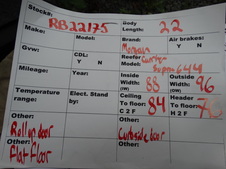 Stock#: RB22175 Body Length: 22
Make: Model: Brand: Morgan Air brakes: Y N
Gvw: CDL: Y N Reefer Model: Carrier Supra 644
Mileage: Year: Inside Width: (IW) 88 Outside Width: (OW) 96
Temperature range: Elect. Stand by: Ceiling To floor: C 2 F 84 Header To floor: H 2 F
Other: Rollup door Other: Curbside door
Other: Flat floor Other: